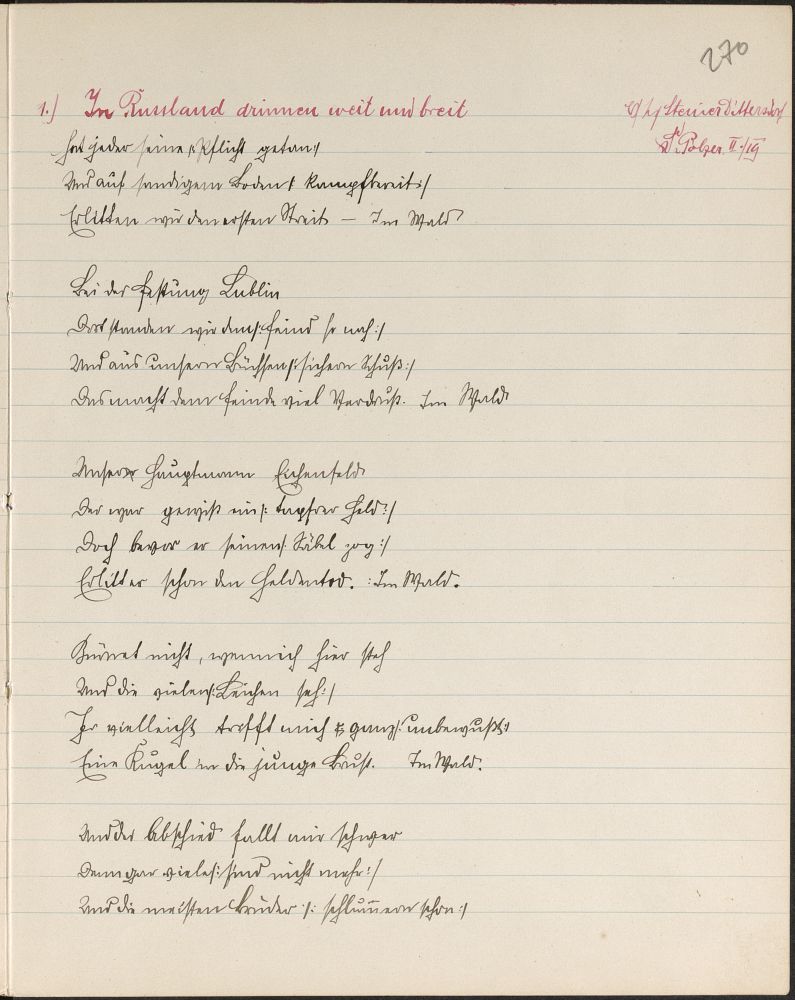 270
1.) In Russland drinnen weit und breit
Steiner Dittersdorf
Polzer. II./19
Hat jeder seine /:Pflicht getan:/
Und auf sandigem Boden /: Kampfbereit:/
Erlitten wir den ersten Streit – Im Wald
Bei der Festung Lublin
Dort standen wir dem /:Feind so nah:/
Und aus unsern Büchsen /:sichern Schuß:/
Das macht dem Feinde viel Verdruß. Im Wald
Unser Hauptmann Eichenfeld
Der war gewiß ein /: tapfrer Held:/
Doch bevor er seinen /: Säbel zog:/
Erlitt er schon den Heldentod. :Im Wald.
Zürnet nicht, wenn ich hier steh
Und die vielen /:Leichen seh:/
Ja vielleicht trefft mich ganz /:unbewußt:/
Eine Kugel in die junge Brust. Im Wald.
Und der Abschied fallt mir schwer
Denn gar viele /:sind nicht mehr:/
Und die meisten Brüder /: schlummern schon:/